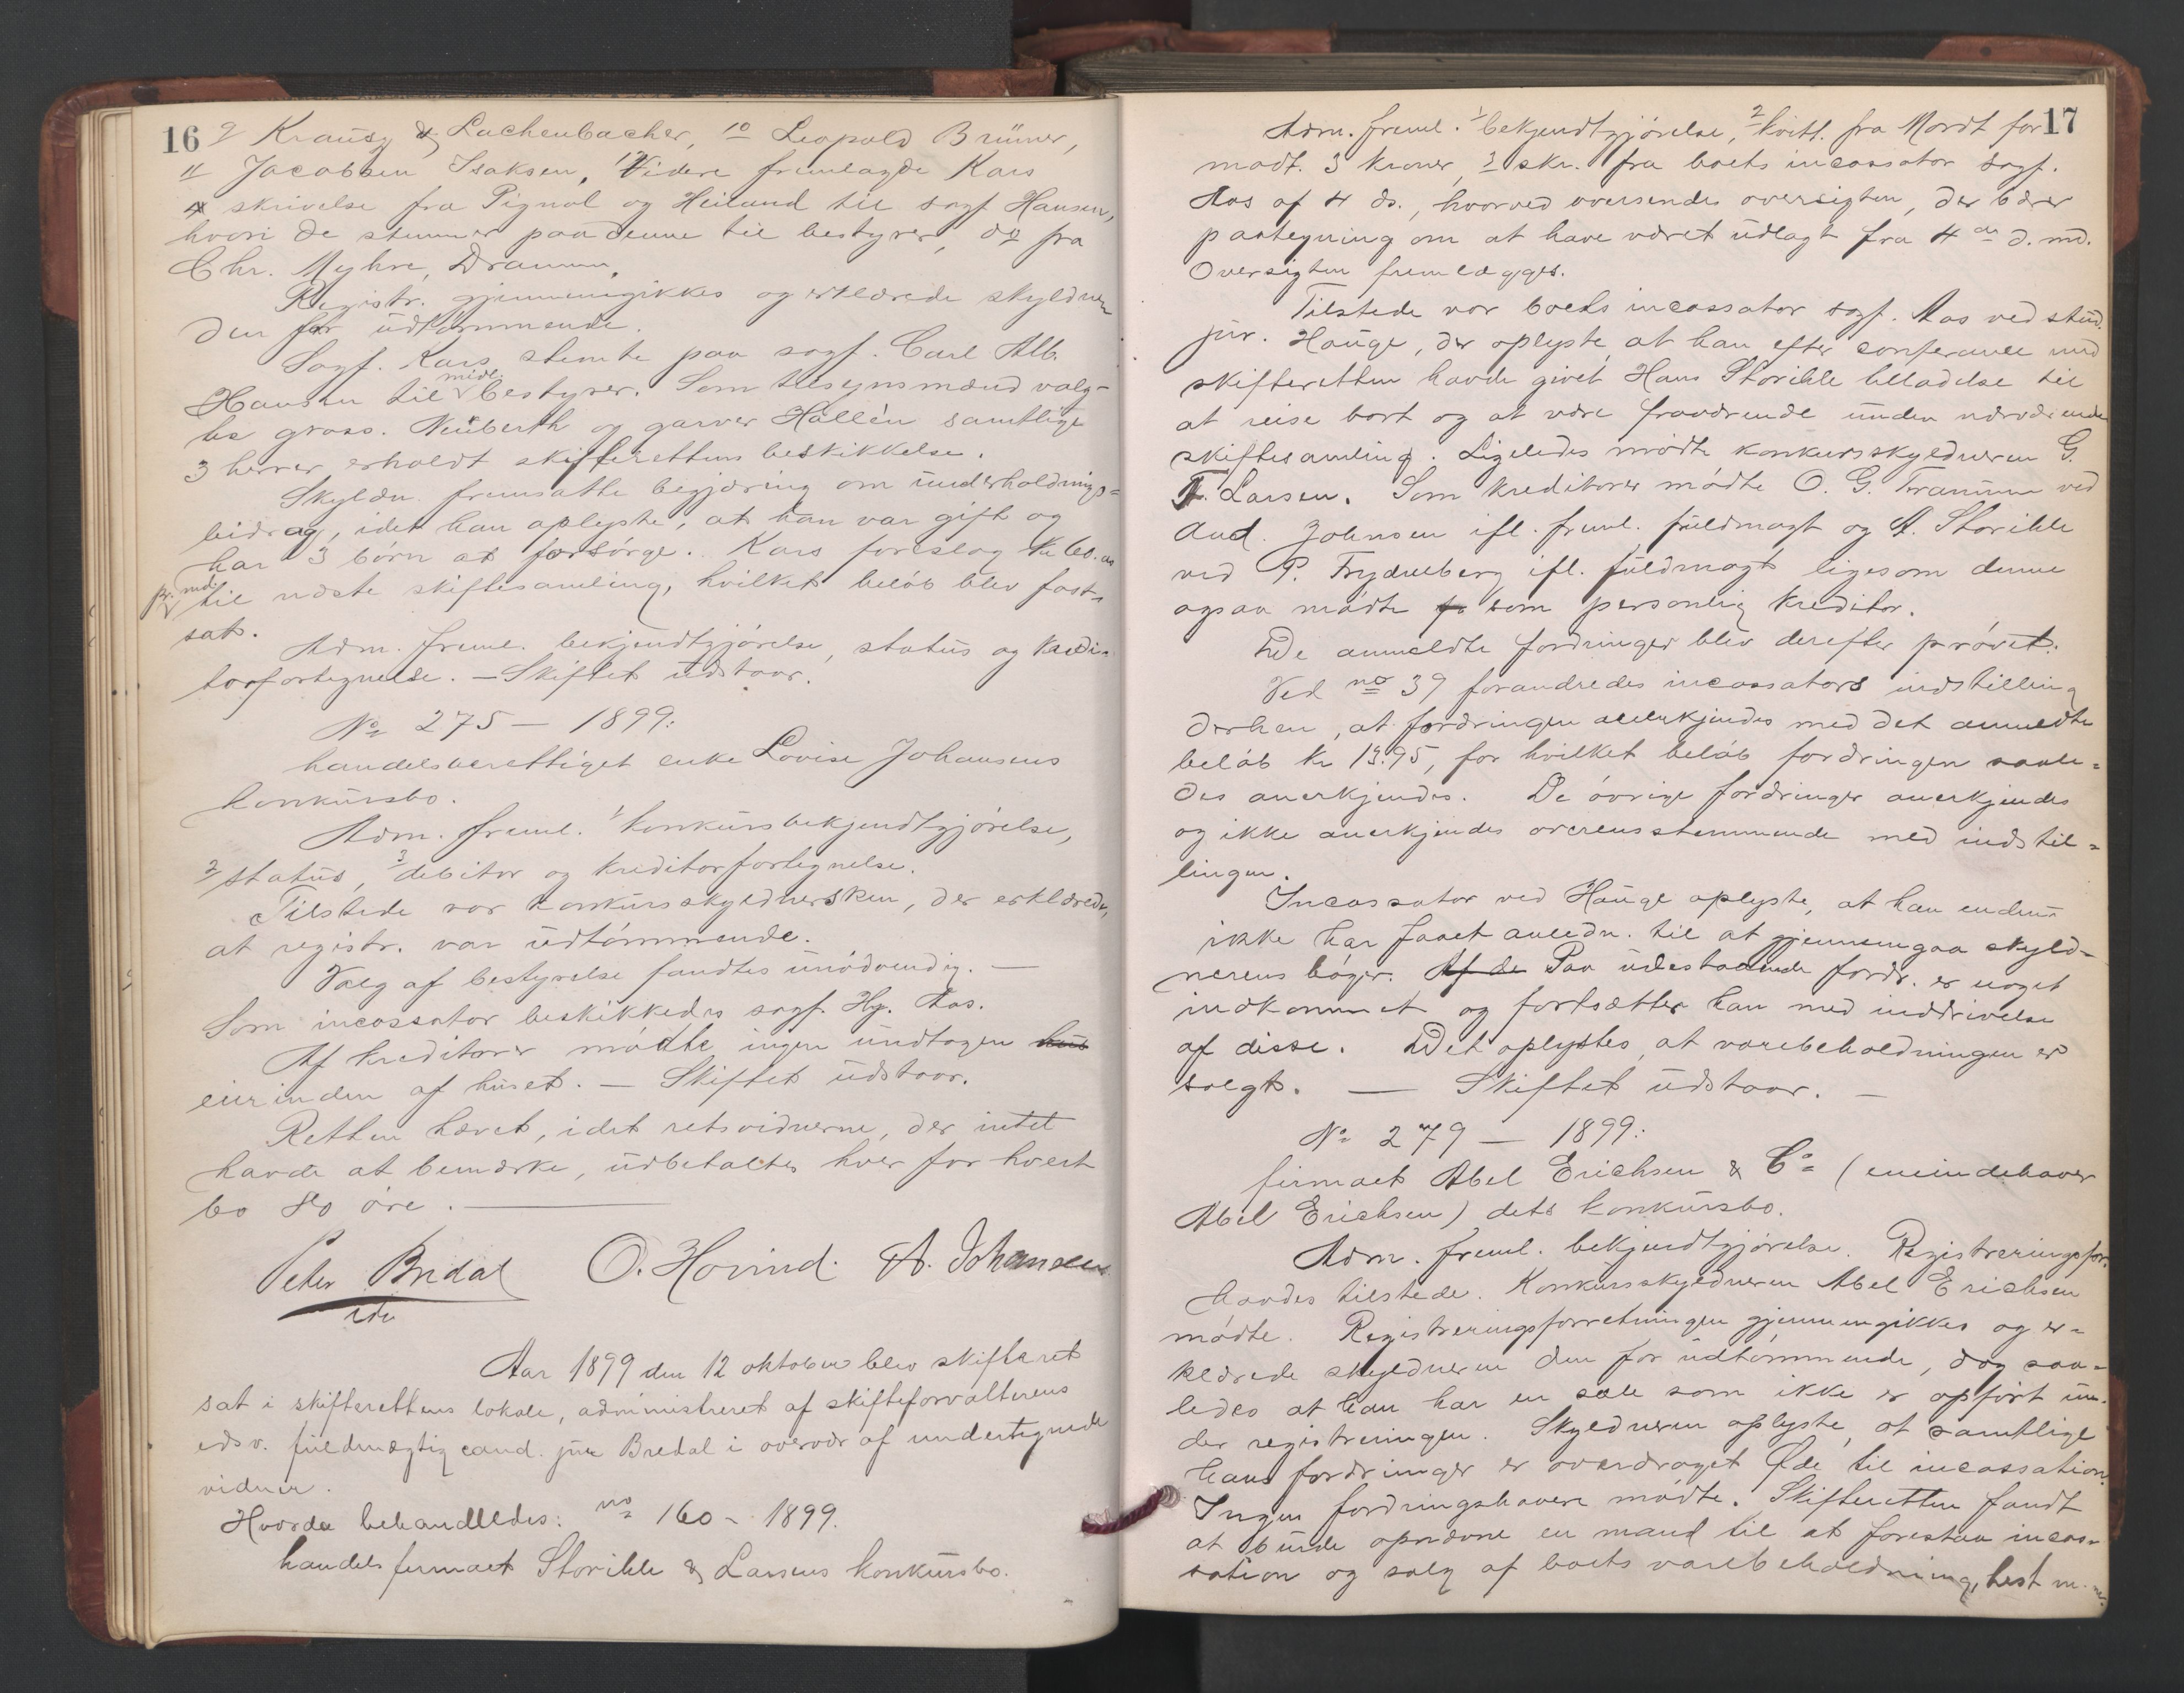 16
9 Krausz & Lachenbacher, 10 Leopold Brüner,
11 Jacobsen Isaksen, 12 Videre fremlagde Kars
skrivelse fra Pignol og Heiland til sagf. Hansen,
hvori de stemmer paa denne til bestyrer, og fra
Chr. Myhre, Drammen.
Registr. gjennemgikkes og erklærede skyldneren
den for udtømmende.
Sagf. Kars stemte paa sagf. Carl Alb.
Hansen til midl. bestyrer. Som tilsynsmænd valg-
tes gross. Neüberth og garver Hallén samtlige
3 herrer erholdt skifterettens beskikkelse.
Skyldn. fremsatte begjæring om underholdnings-
bidrag, idet han oplyste, at han var gift og
har 3 børn at forsørge. Kars foreslog kr 60.00
pr. md. til næste skiftesamling, hvilket beløb blev fast-
sat.
Adm. freml. bekjendtgjørelse, status og kredi-
torfortegnelse. — Skiftet udstaar.
No 275 — 1899:
handelsberettiget enke Lovise Johansens
konkursbo.
Adm. freml. 1 konkursbekjendtgjørelse,
2 status, 3 debitor og kreditorfortegnelse.
Tilstede var konkursskyldnersken, der erklærede,
at registr. var udtømmende.
Valg af bestyrelse fandtes unødvendig. —
Som incassator beskikkedes sagf. Hj. Aas.
Af kreditorer mødte ingen undtagen
eierinden af huset. — Skiftet udstaar.
Retten hævet, idet retsvidnerne, der intet
havde at bemærke, udbetaltes hver for hvert
bo 80 øre. —
Peter Bredal O. Hovind. A. Johansen
Aar 1899 den 12 oktober blev skifteret
sat i skifterettens lokale, administreret af skifteforvalterens
edsv. fuldmægtig cand. jur Bredal i overvær af undertegnede
vidner.
Hvorda behandledes: no 160 – 1899.
handelsfirmaet Storihle & Larsens konkursbo.
17
Adm. freml. 1 bekjendtgjørelse, 2 kvitt. fra Mordt for
modt. 3 kroner, 3 skr. fra boets incassator sagf.
Aas af 4 ds., hvorved oversendes oversigten, der bærer
paategning om at have været udlagt fra 4 de d. md.
Oversigten fremlægges.
Tilstede var boets incassator sagf. Aas ved stud.
jur. Hauge, der oplyste at han efter conferance med
skifteretten havde givet Hans Storihle tilladelse til
at reise bort og at være fraværende under nærværende
skiftesamling. Ligeledes mødte konkursskyldneren G.
Larsen. Som kreditorer mødte O. G. Tranum ved
And. Johnsen ifl. freml. fuldmagt og A. Storihle
ved P. Frydenberg ifl. fuldmagt ligesom denne
ogsaa mødte som personlig kreditor.
De anmeldte fordringer blev derefter prøvet.
Ved no 39 forandredes incassators indstilling
derhen, at fordringen anerkjendes med det anmeldte
beløb kr 13.95, for hvilket beløb fordringen saale-
des anerkjendes. De øvrige fordringer anerkjendes
og ikke anerkjendes overensstemmende med indstil-
lingen.
Incassator ved Hauge oplyste, at han endnu
ikke har faaet anledn. til at gjennemgaa skyld-
nerens bøger. Af de Paa udestaaende fordr. er noget
indkommet og fortsætter han med inddrivelse
af disse. Det oplystes, at varebeholdningen er
solgt. — Skiftet udstaar. —
No 279 — 1899:
firmaet Abel Erichsen & Co (eneindehaver
Abel Erichsen) dets konkursbo.
Adm. freml. bekjendtgjørelse. Registreringsfor.
havdes tilstede. Konkursskyldneren Abel Erichsen
mødte. Registreringsforretningen gjennemgikkes og er-
klærede skyldneren den for udtømmende, dog saa-
ledes at han har en sæle som ikke er opført un-
der registreringen. Skyldneren oplyste, at samtlige
hans fordringer er overdraget Øde til incassation.
Ingen fordringshavere mødte. Skifteretten fandt
at burde opnævne en mand til at forestaa incas-
sation og salg af boets varebeholdning, hest m.m.